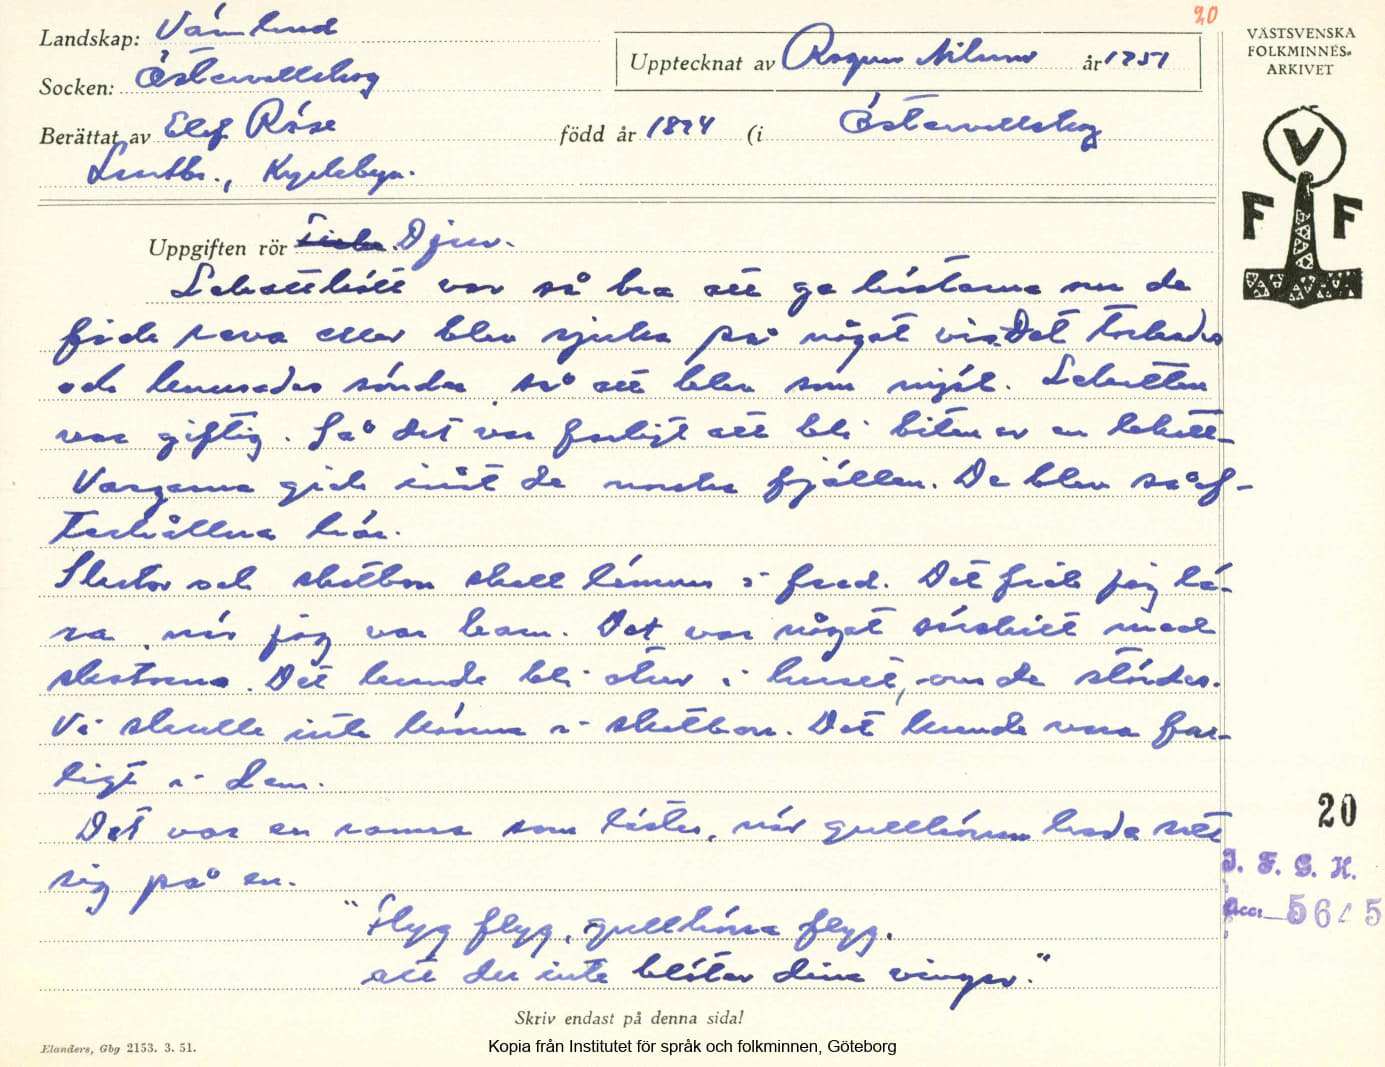 20
Landskap: Värmland
Socken: Östervallskog
Upptecknat av Ragnar Nilsson år 1951
VÄSTSVENSKA
FOLKMINNES-
ARKIVET
Berättat av Elof Röse född år 1894 (i Östervallskog
Lantbr.,
V
F F
Uppgiften rör Djur.
Lekattkött var så bra att ge hästarna när de
fick kava eller blev sjuka på något vis. Det torkades
och krossades sönder så att blev som mjöl. Lekatten
var giftig. Så det var farligt att bli biten av en lekatt.
Vargarna gick inåt de norska fjällen. De blev så ef-
terhållna här.
Skator och skatbon skall lämnas i fred. Det fick jag lä-
ra, när jag var barn. Det var något särskilt med
skatorna. Det kunde bli otur i huset, om de stördes.
Vi skulle inte känna i skatbon. Det kunde vara far-
ligt i dem.
Det var en ramsa som lästes, när gullhöna hade satt
sig på en.
"Flyg flyg, gullhöna flyg,
att du inte blöter dina vingar."
20
I. F. G. H.
Acc:
Skriv endast på denna sida!
Elanders, Gbg 2153. 3. 51.
Kopia från Institutet för språk och folkminnen, Göteborg